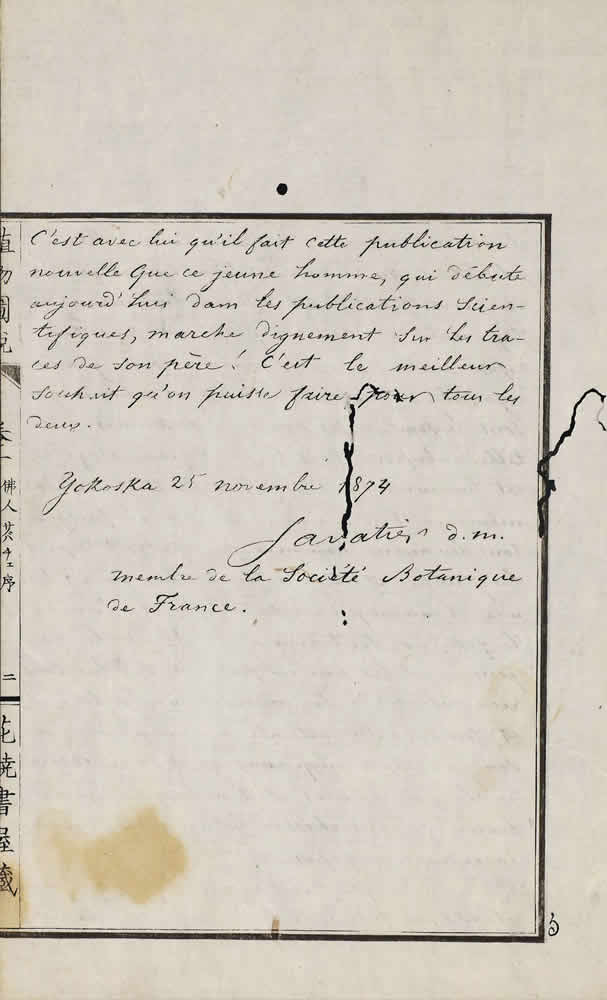 C'est avec lui qu'il fait cette publication
nouvelle Que ce jeune homme, qui débute
aujourd'hui dans les publications scien-
tifiques, marche dignement sur les tra-
ces de son père! C'est le meilleur
souhait qu'on puisse faire pour tous les
deux.
Yokoska 25 novembre 1874
Savatier d.m.
membre de la Société Botanique
de France.
植物圖說
卷一
佛人
序
二
花曉書屋藏